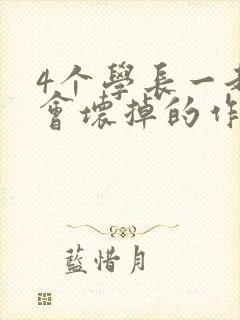 4个學長一
會壞掉的作
藍惜月